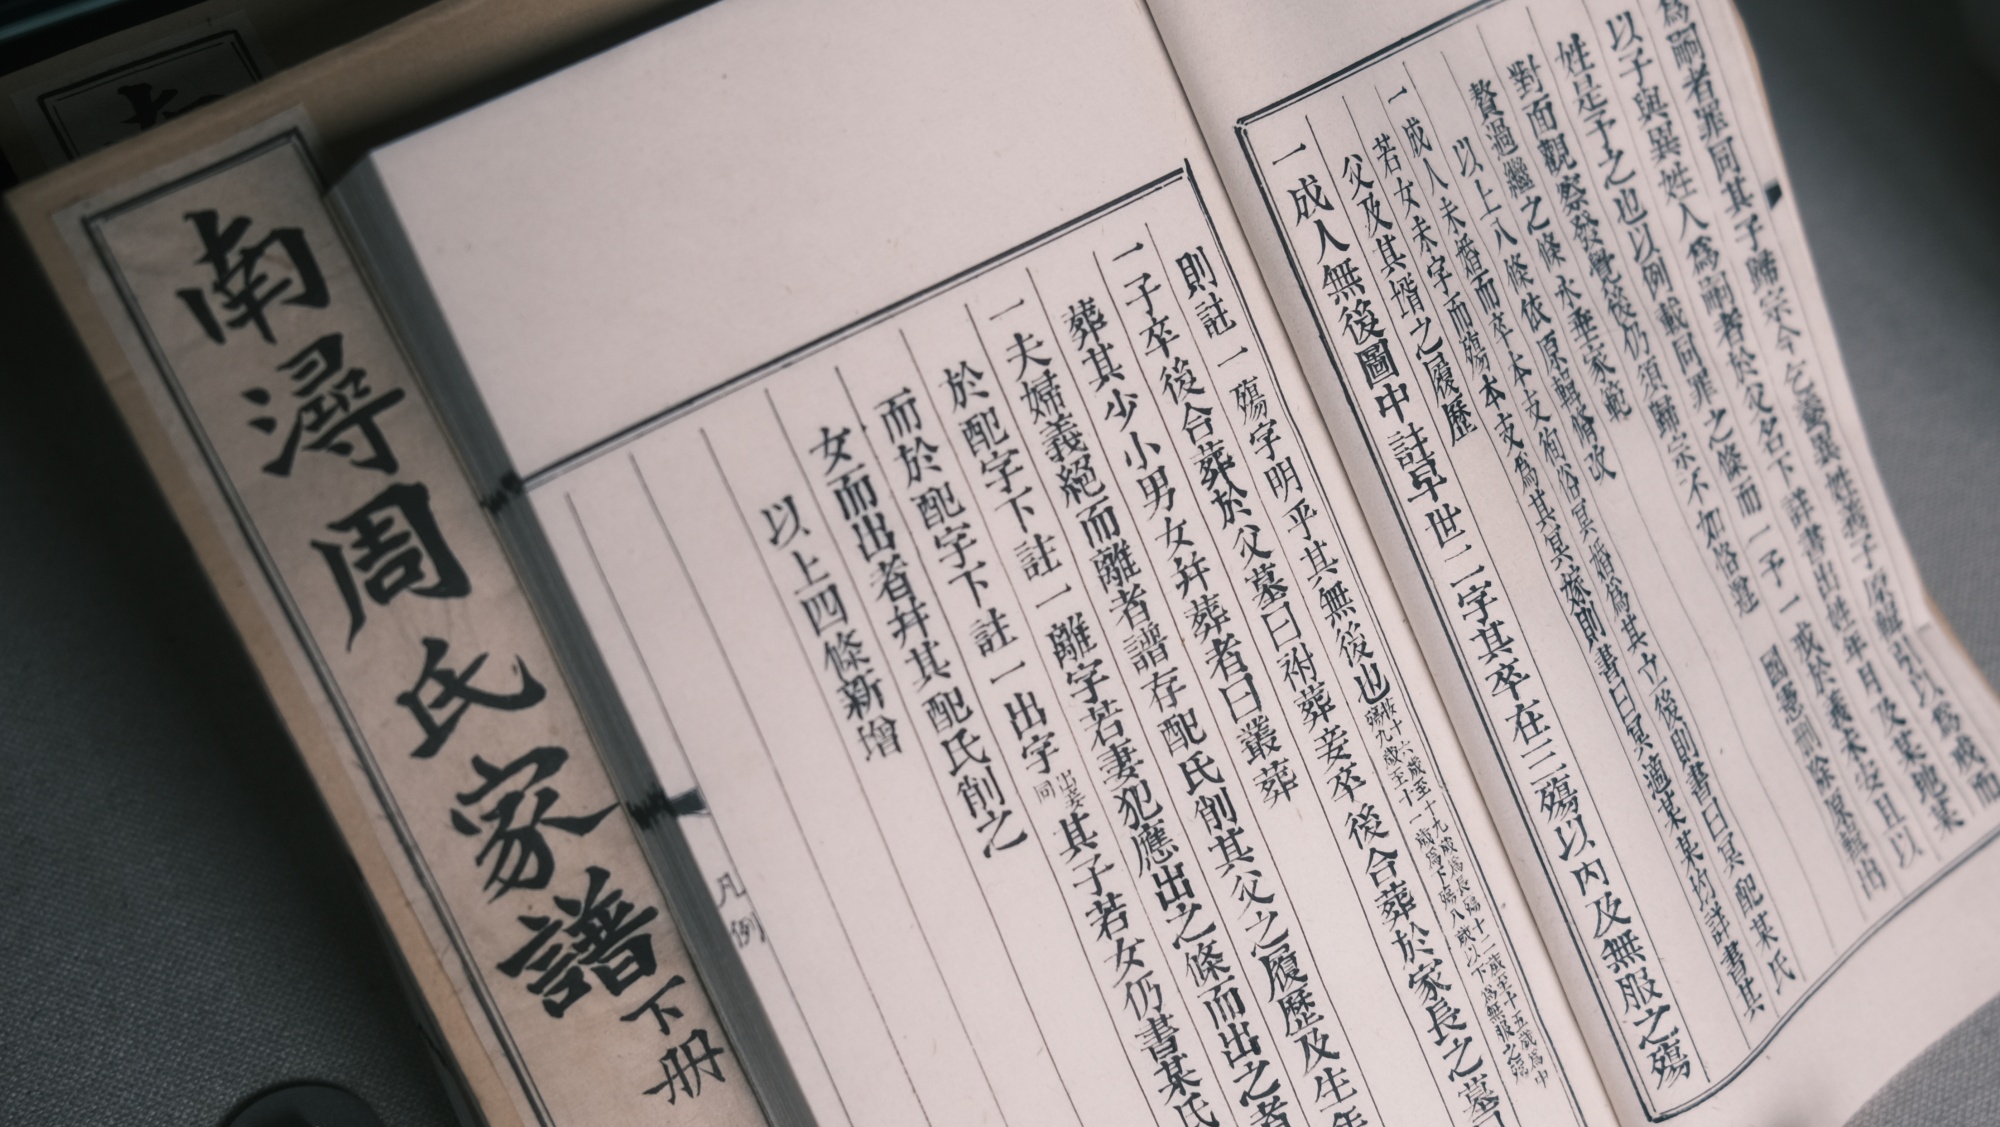 南潯周氏家譜下册
爲嗣者罪同其子歸宗今乞養異姓義子原輯引以爲戒而
以子與異姓人爲嗣者於父名下詳書出姓年月及某地某
姓是予之也以例載同罪之條而一予一戒於義未安且以
對面觀察發覺後仍須歸宗不如恪遵
國憲刪除原輯出
贅過繼之條永垂家範
以上八條依原輯脩改
一成人未婚而卒本支徇俗冥婚爲其立後則書曰冥配某氏
若女未字而殤本支爲其冥嫁則書曰冥適某某均詳書其
父及其壻之履歷
一成人無後圖中註早世二字其卒在三殤以内及無服之殤
則註一殤字明乎其無後也按十六歲至十九歲爲長殤十二歲至十五歲爲中
殤九歲至十一歲爲下殤八歲以下爲無服之殤
一子卒後合葬於父墓曰祔葬妾卒後合葬於家長之墓
葬其少小男女幷葬者曰叢葬
一夫婦義絕而離者譜存配氏削其父之履歷及生年
於配字下註一離字若妻犯應出之條而出之者
而於配字下註一出字出妾同其子若女仍書某氏
女而出者幷其配氏削之
以上四條新增
凡例